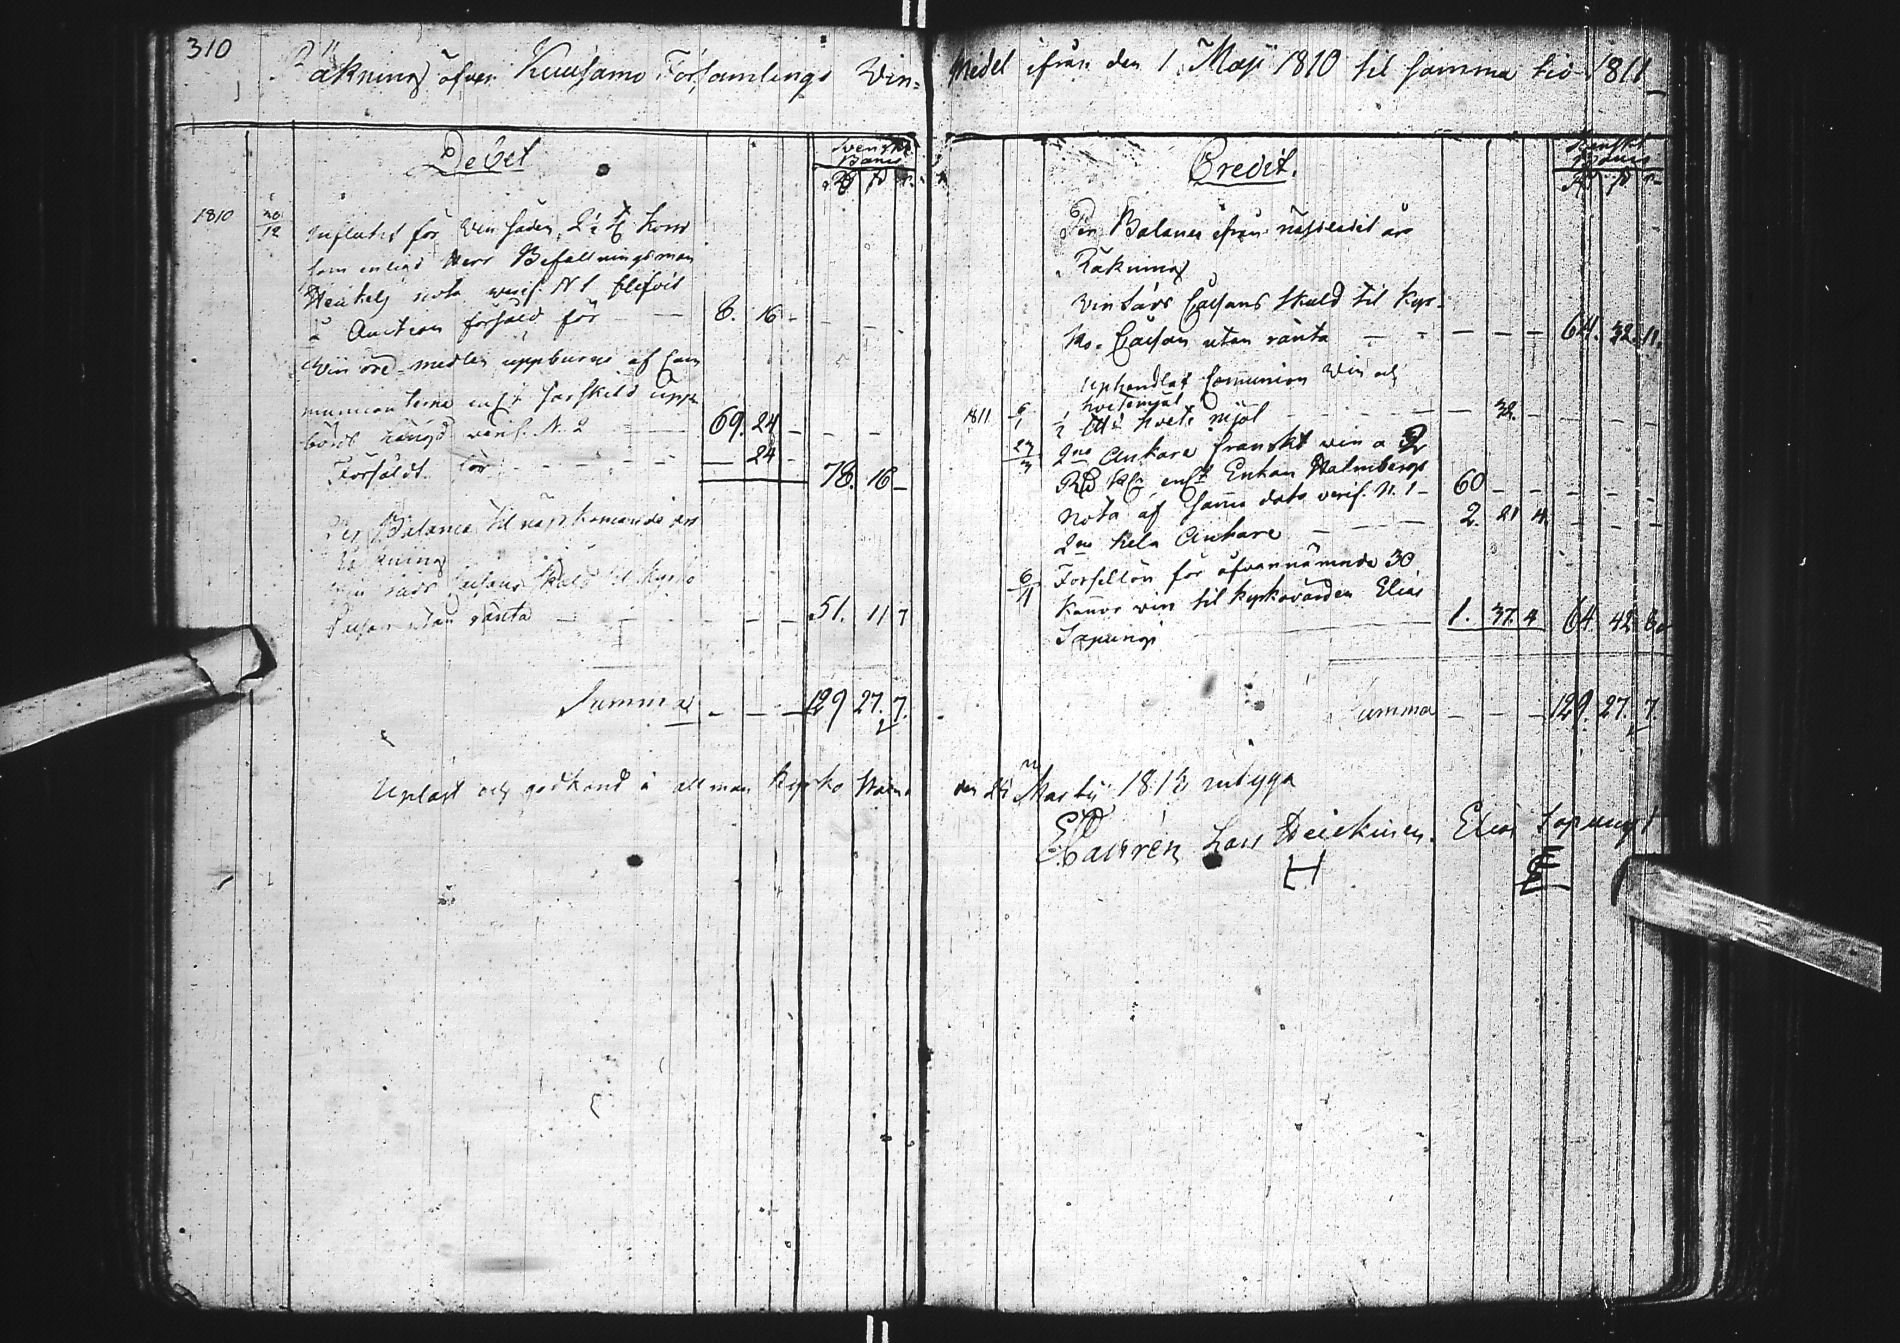 310
Räkning öfver Kuusamo Församlings Win-
Medel ifrån den 1 Maji 1810 til samma tid 1811
Debet
Svenskt
Banco
Rd ß r.
1810 20/12 Influtit för Winsäden, 2½ Korn
som enligt Herr Befallningsman
nota verif. N 1 blifvit
å Auction försåld för — — 8. 16 -
Win öre-medlen uppburne af Com
municanterne enligt särskild Upp
börds längd verif. N. 2 — 69. 24 -
Försåldt — 24 - 78. 16 -
Per Balance til nästkomande års
Räkning
Win Säds Cassans Skuld til Kyrko
Cassan utan ränta — — 51. 11 7
Summa — — — 129 27. 7.
Credit.
Svenskt
Banco
Rd ß r
Per Balance ifrån nästledit års
Räkning
Win Säds Cassans skuld til Kyr-
ko-Cassan utan ränta — — — 64. 32. 11.
Uphandlat Comunion Win och
hvetemjöl
1811 6/1 ½ hvete mjöl — — 32. -
27/3 2ne Ankare franskt win a
Rd enligt Enkan Malmbergs
nota af samma dato verif. N. 1 — 60 - -
2ne hela Ankare — — 2. 21 4.
6/11 Forsellön för ofvannämnde 30
Kannor win til kyrkovärden Elias
Sapungi — 1. 37. 4 64. 42. 8
Summa — — — 129. 27. 7.
Upläst och godkänd å allmän kyrko Stämma
den 24 Martii 1812 intyga
Lars Heickinen. Elias Sapungi
H